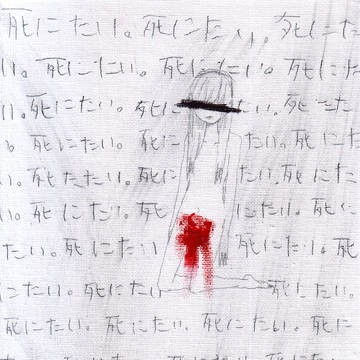 死にたい。死にたい。死にた
い。死にたい。死にたい。死にた
い。死にたい。死にたい。死にた
死にたい。死に たい。死に
い。死にたい。死に たい。死にた
死にたい。死 にたい。死に
たい。死にたい にたい。死にた
にたい。死にたい 死にたい。
死にたい。死にたい。死にたい。死
にたい。死にたい。